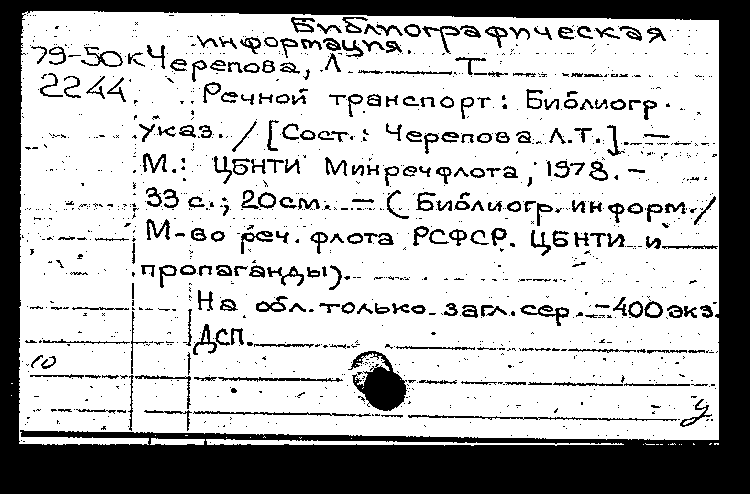 Библиографическая
информация.
79-50к Черепова, Л Т
2244 Речной транспорт: Библиогр.
указ. / [Сост.: Черепова Л.Т.]. —
М.: ЦБНТИ Минречфлота, 1978. —
33 с.; 20 см. — (Библиогр. информ. /
М-во реч. флота РСФСР. ЦБНТИ и
пропаганды).
На обл. только загл. сер. — 400 экз.
Дсп.
10
у